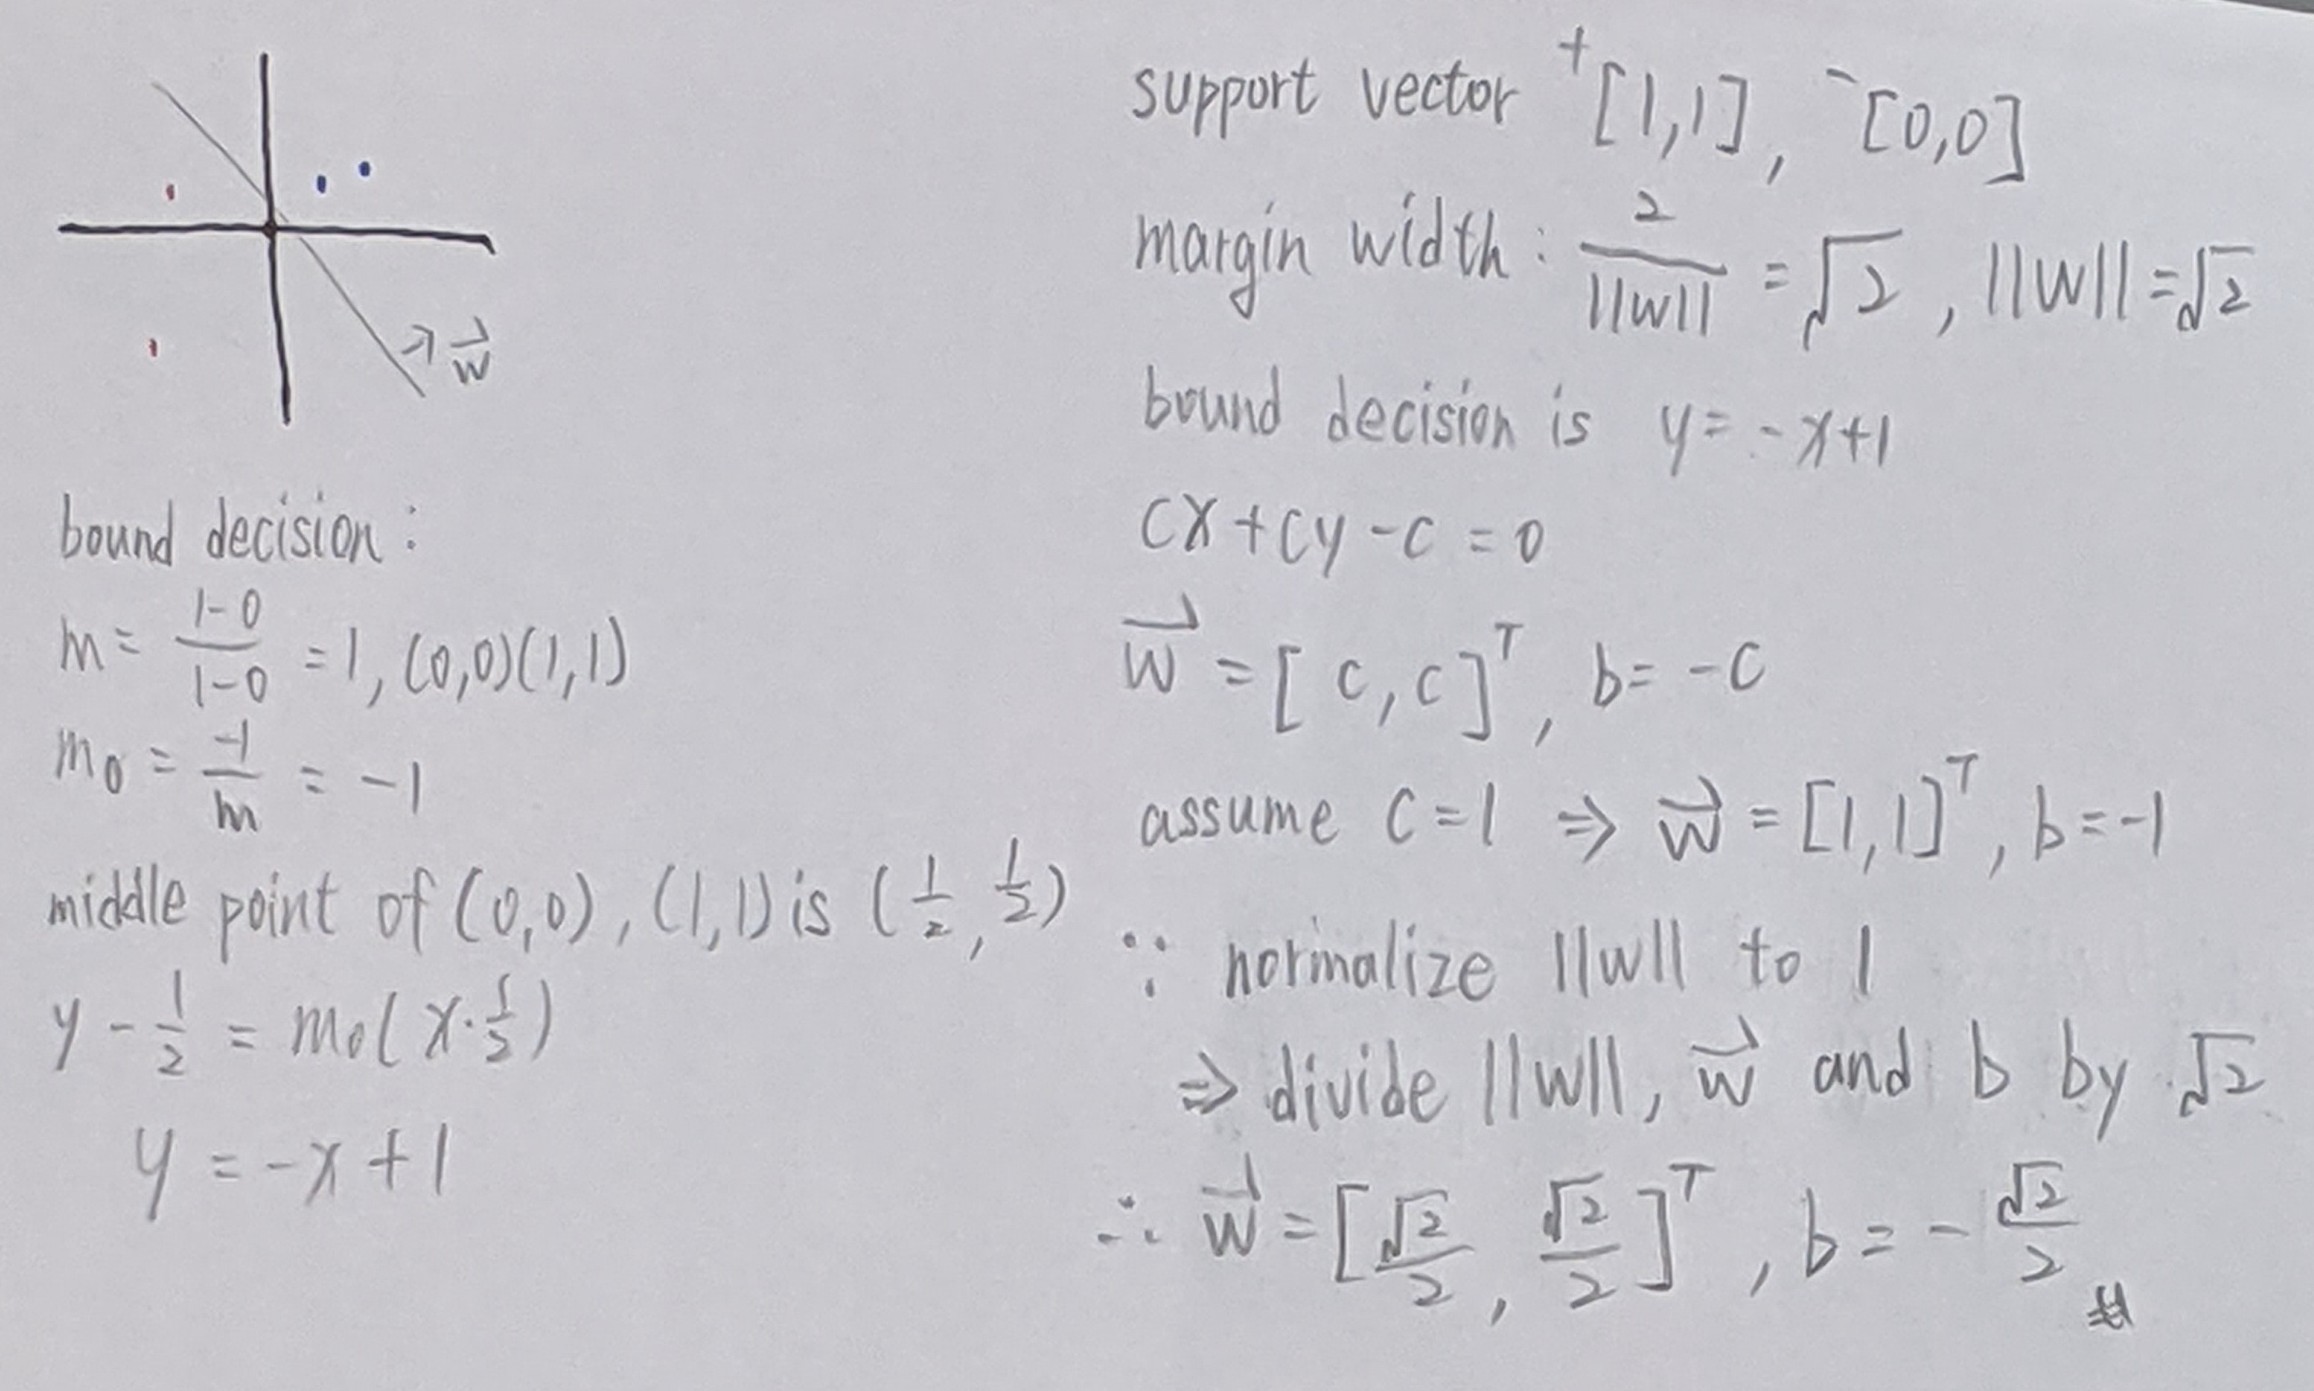 w⃗
bound decision :
m = (1-0)/(1-0) = 1, (0,0)(1,1)
m₀ = -1/m = -1
middle point of (0,0), (1,1) is (1/2, 1/2)
y - 1/2 = m₀(x · 1/2)
y = -x + 1
support vector ⁺[1,1], ⁻[0,0]
margin width : 2/||w|| = √2, ||w|| = √2
bound decision is y = -x+1
cx + cy - c = 0
w⃗ = [c, c]ᵀ, b = -c
assume c = 1 ⇒ w⃗ = [1,1]ᵀ, b = -1
∵ normalize ||w|| to 1
⇒ divide ||w||, w⃗ and b by √2
∴ w⃗ = [√2/2, √2/2]ᵀ, b = -√2/2